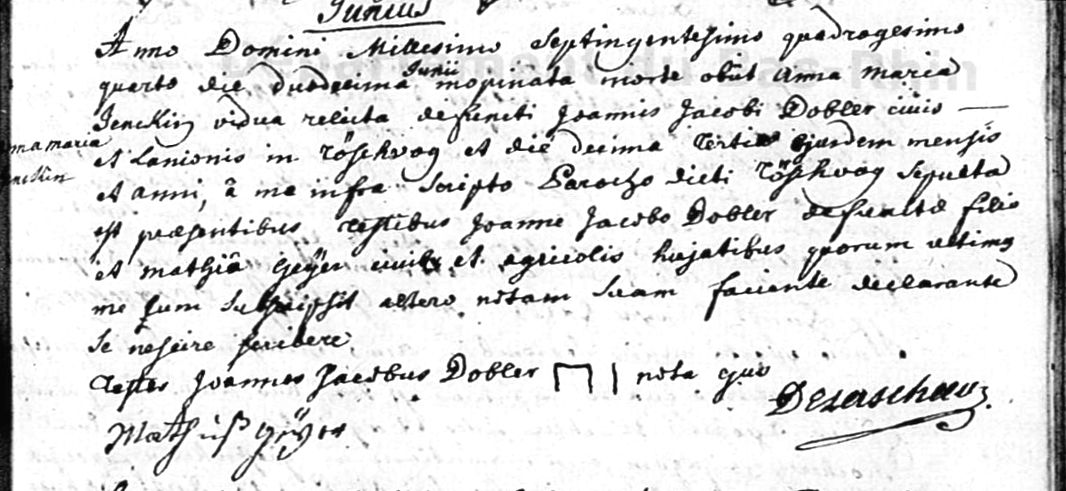 Junius
Anno Domini Millesimo Septingentesimo quadragesimo
quarto die duodecima Junii inopinata morte obiit Anna Maria
Jenckin vidua relicta defuncti Joannis Jacobi Dobler civis
et Lanionis in Röschvog et die decima tertia ejusdem mensis
Anna maria
et anni, â me infra scripto Parocho dicti Röschvog sepulta
est praesentibus testibus Joanne Jacobo Dobler defunctae filio
et mathiâ Geÿer et agricolis hujatibus quorum ultimus
me cum subscripsit altero notam suam faciente declarante
se nescire scribere
testes Joannes Jacobus Dobler nota ejus
Mathis Geÿer